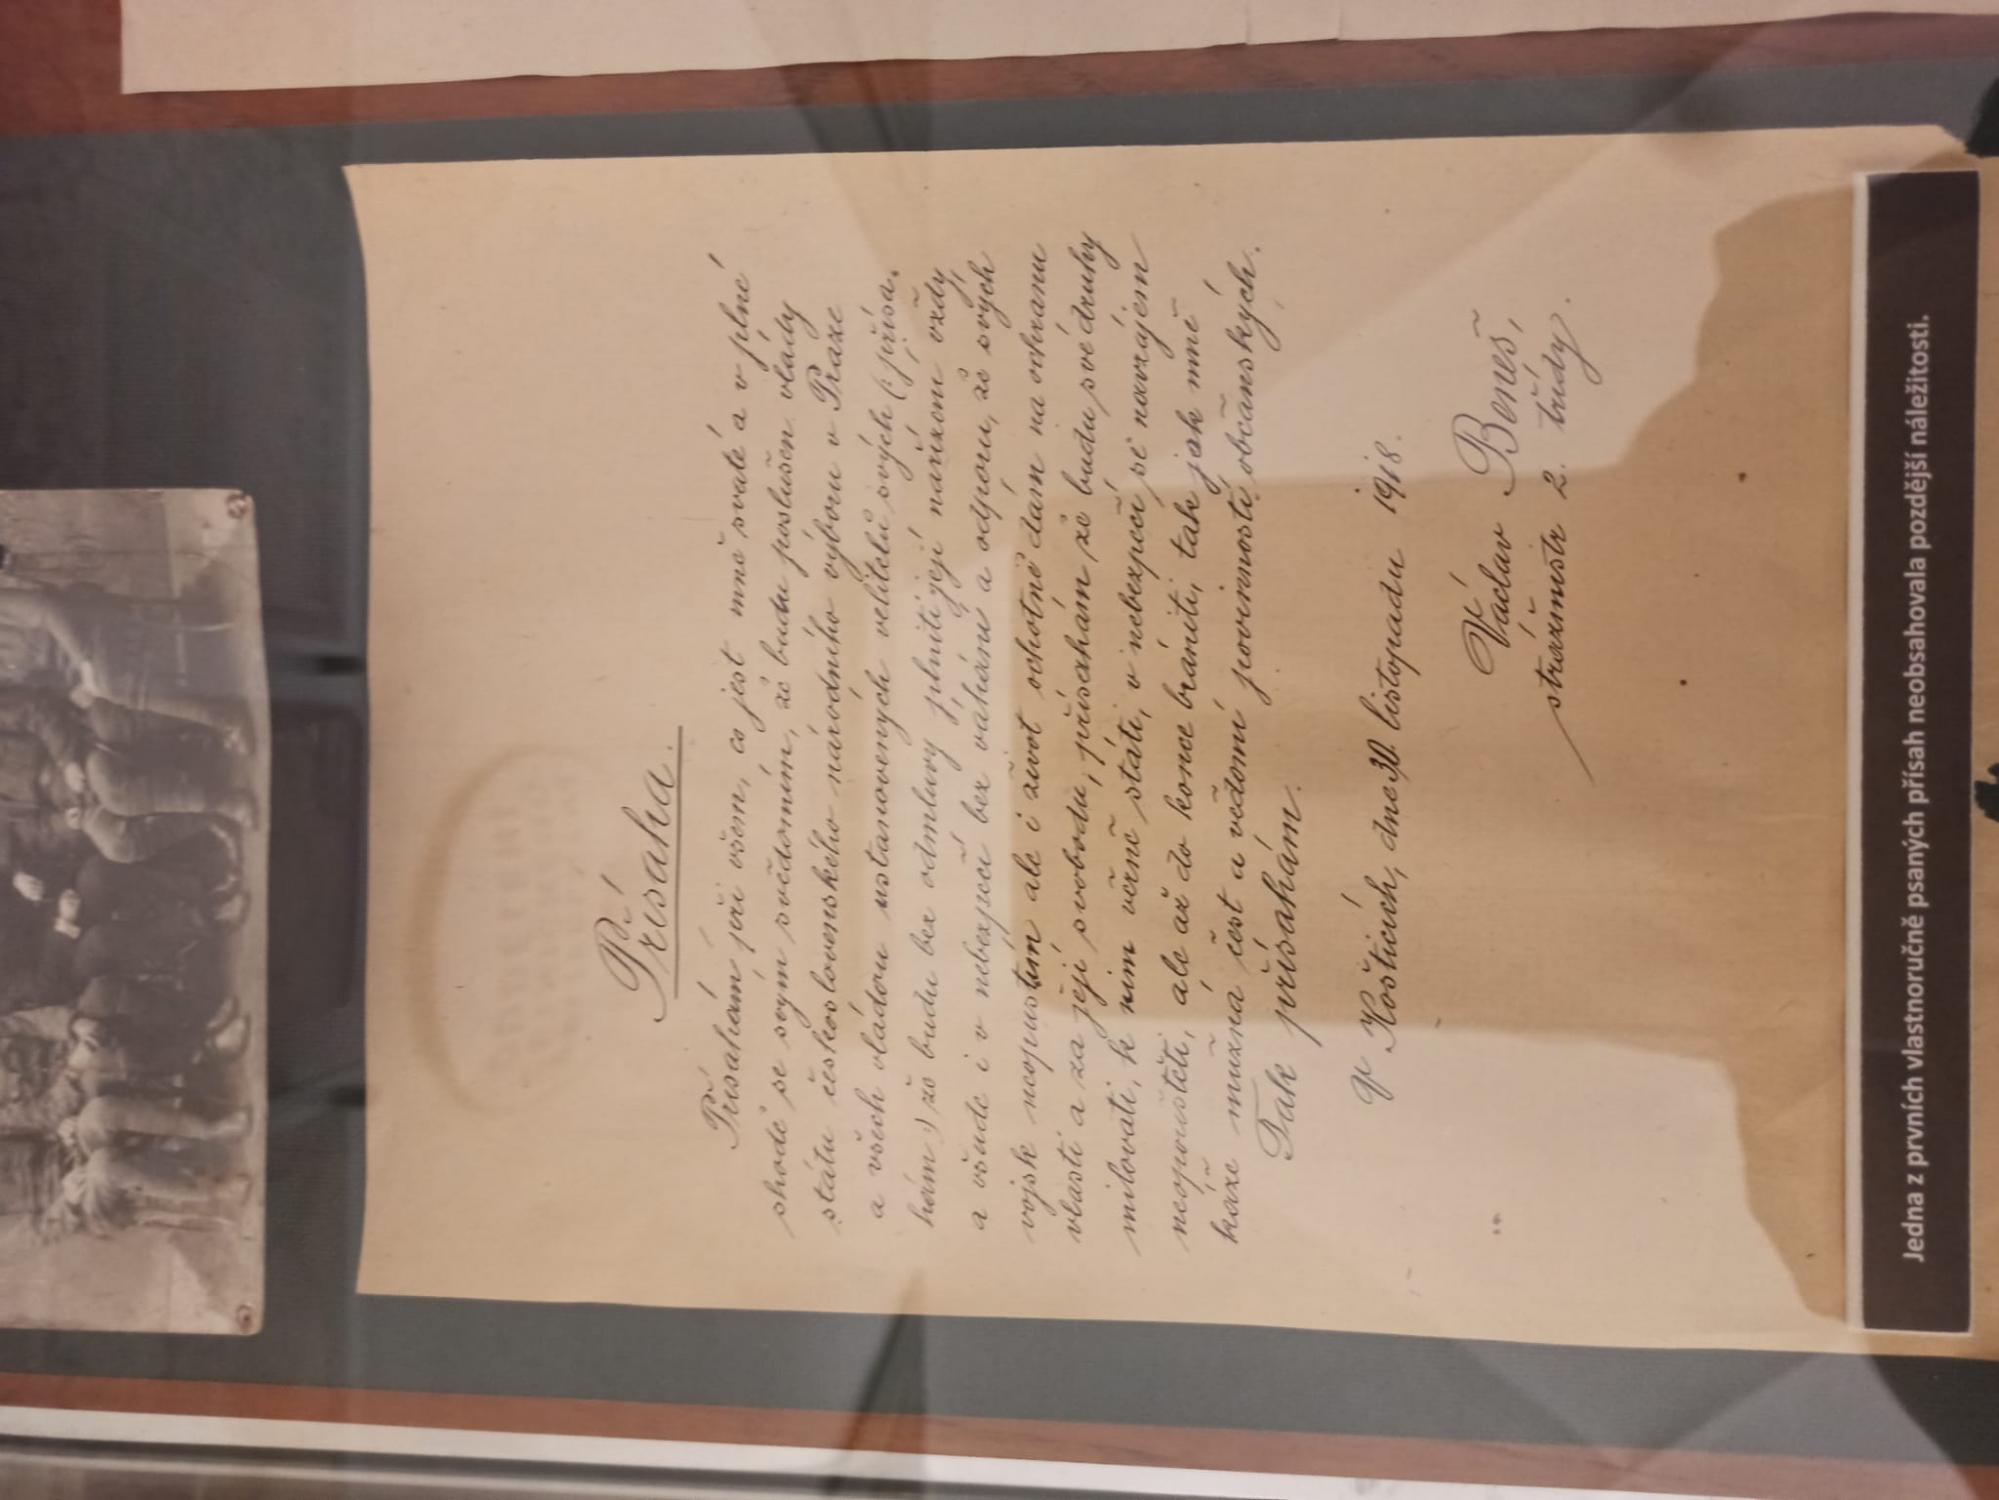 Přísaha.
Přísahám při všem, co jest mně svaté a v plné
shodě se svým svědomím, že budu poslušen vlády
státu československého národního výboru v Praze
a všech vládou ustanovených velitelů svých (: přísa-
hám :) že budu bez odmluvy plniti její nařízení vždy
a všude i v nebezpečí bez váhání a odporu, že svých
vojsk neopustím ale i život ochotně dám na ochranu
vlasti a za její svobodu, přísahám že budu své druhy
milovati, k nim věrně státi, v nebezpečí se navzájem
neopouštěti, ale až do konce brániti, tak jak mně
káže mužná čest a vědomí povinností občanských.
Tak přísahám.
V Hošticích, dne 30. listopadu 1918.
Václav Beneš,
strážmistr 2. třídy.
Jedna z prvních vlastnoručně psaných přísah neobsahovala pozdější náležitosti.